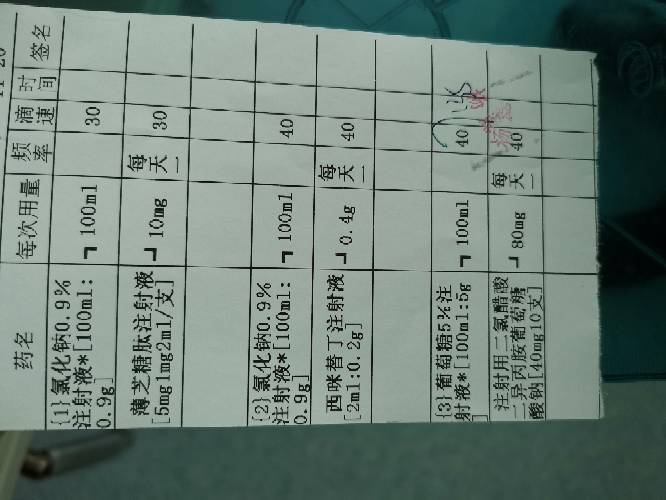 药名 每次用量 频率 滴速 时间 签名
{1}氯化钠0.9%
注射液*[100ml:
0.9g]
┓ 100ml
30
薄芝糖肽注射液
[5mg1mg2ml/支]
┛ 10mg
每天一
30
{2}氯化钠0.9%
注射液*[100ml:
0.9g]
┓ 100ml
40
西咪替丁注射液
[2ml:0.2g]
┛ 0.4g
每天一
40
{3}葡萄糖5%注
射液*[100ml:5g
]
┓ 100ml
40
注射用二氯醋酸
二异丙胺葡萄糖
酸钠[40mg10支]
┛ 80mg
每天一
40